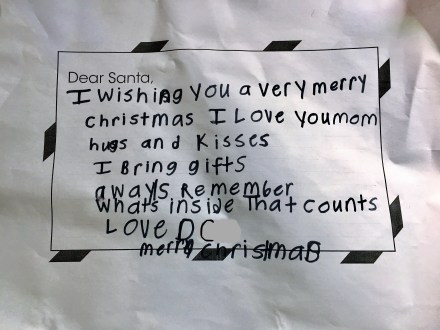 Dear Santa,
I wishing you a very merry
christmas I Love You mom
hugs and kisses
I Bring gifts
aways Remember
whats inside that counts
LOVE D C
merry christmas